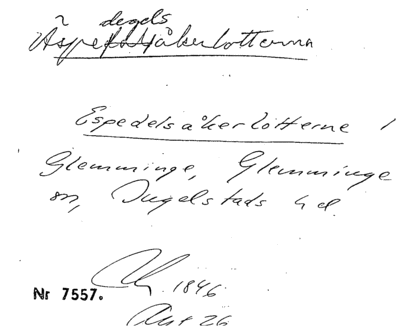 ~ degels
Äspefallåkerlotterna
Espedelsåkerlotterne /
Glemminge, Glemminge
sn, Ingelstads hd.
1846
Nr 7557.
26